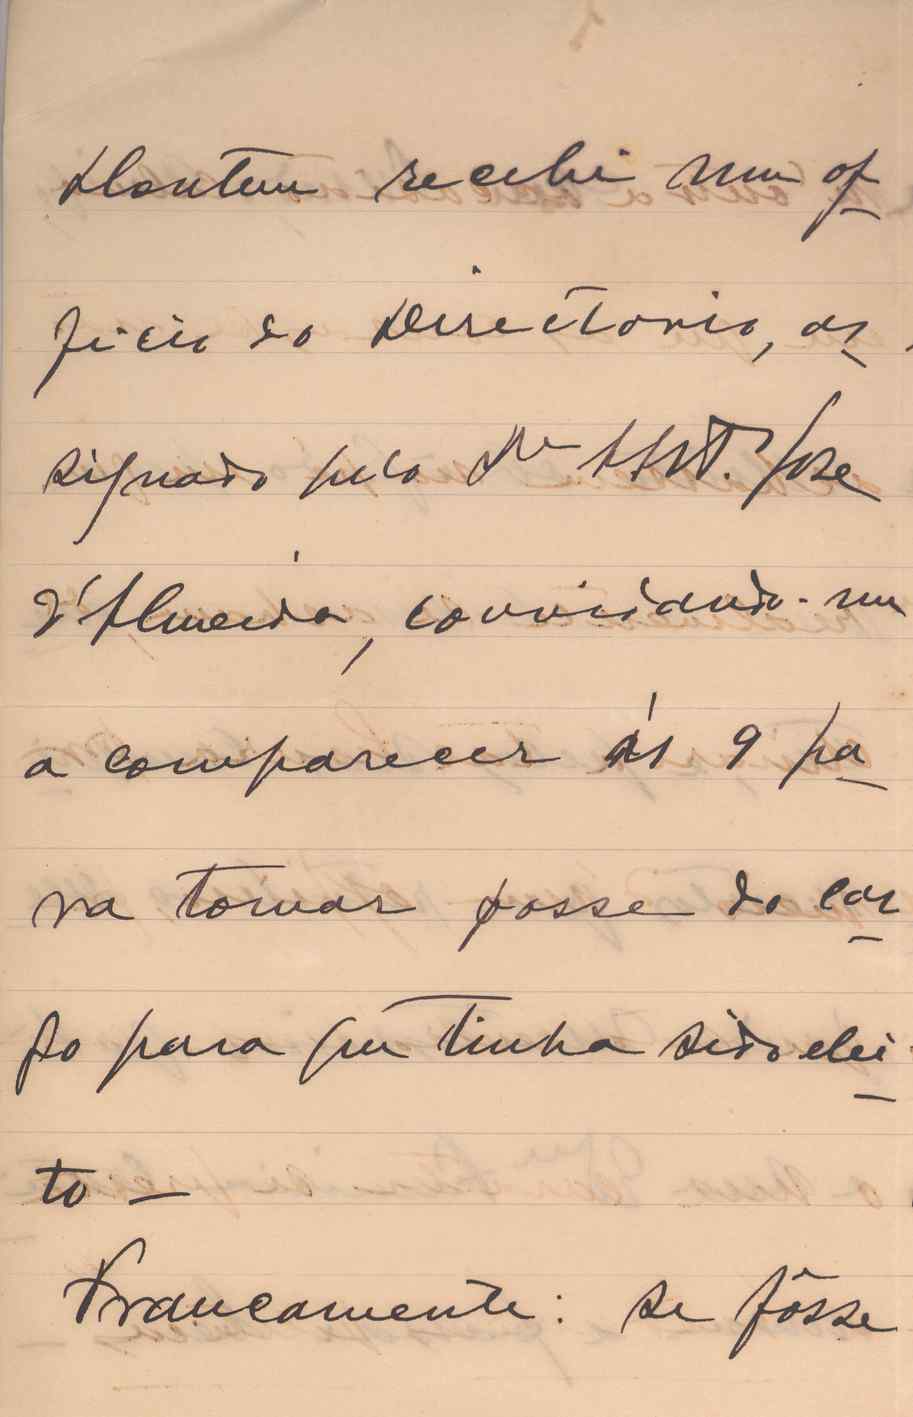 Hontem recebi um of-
ficio do Directorio, as-
signado pelo Dr Ant. José
d'Almeida, convidando-me
a comparecer ás 9 pa-
ra tomar posse do car-
go para que tinha sido elei-
to —
Francamente: se fôsse